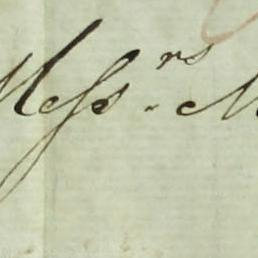 Messrs. M